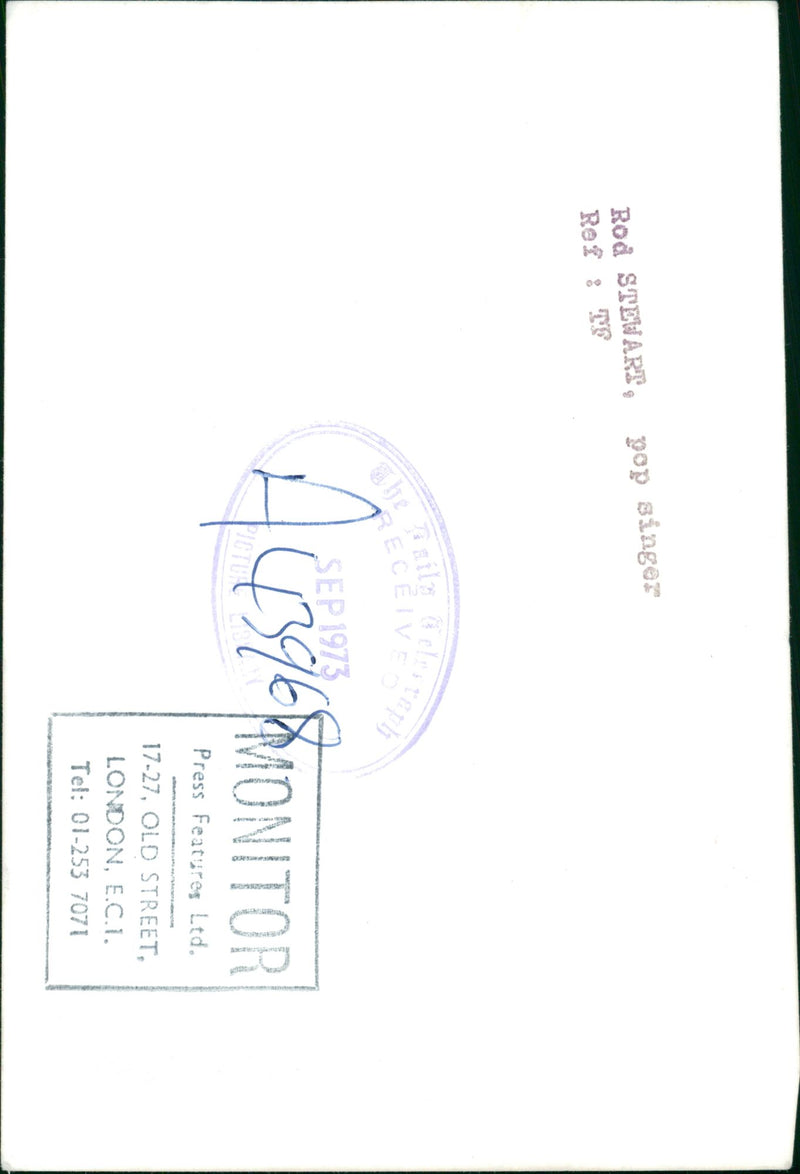 Rod STEWART, pop singer
Ref : TF
The Daily Telegraph
RECEIVED
SEP 1973
PICTURE LIBRARY
A43968
MONITOR
Press Features Ltd.
17-27, OLD STREET,
LONDON, E.C.1.
Tel: 01-253 7071